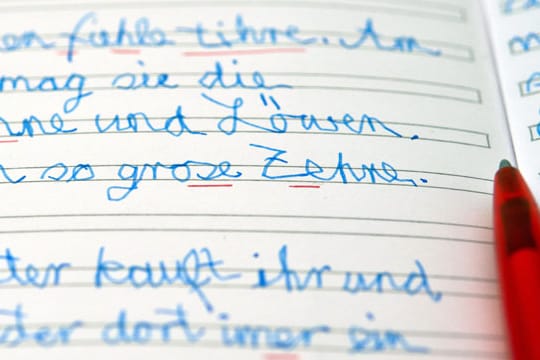 en fiehle tihre. Am
mag sie die
nne und Löwen.
so grose Zehne.
ter kauft ihr und
der dort imer ein